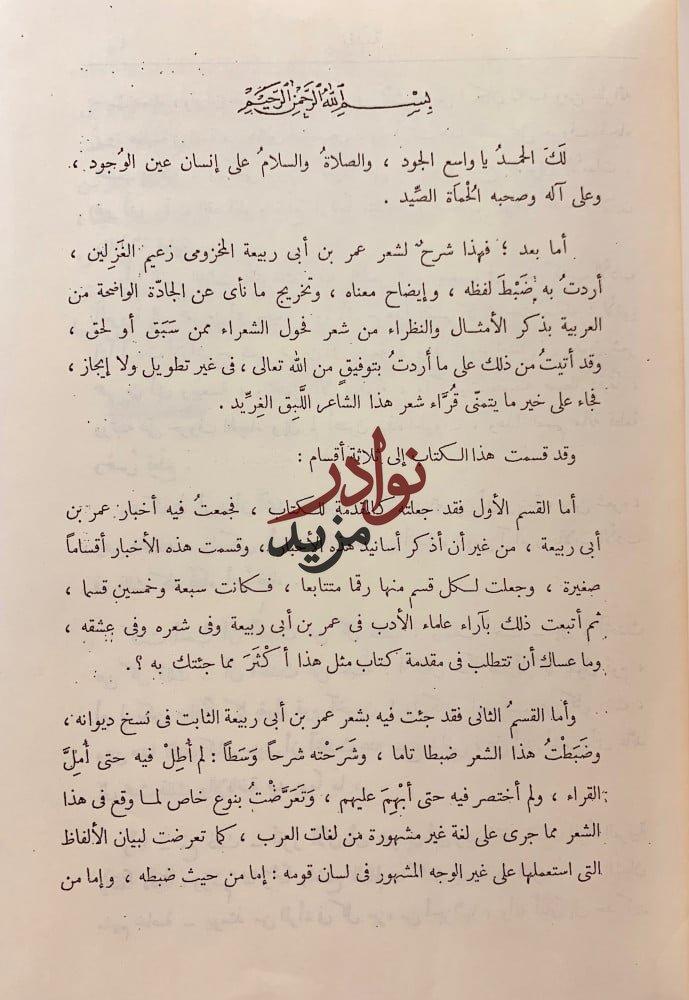 بِسْمِ اللهِ الرَّحْمٰنِ الرَّحِيْمِ
لَكَ الحمدُ يا واسع الجود ، والصلاةُ والسلامُ على إنسان عين الوُجود ،
وعلى آله وصحبه الحُمَاة الصِّيد .
أما بعد ؛ فهذا شرحٌ لشعر عمر بن أبى ربيعة المخزومى زعيم الغَزَلين ،
أردتُ به ضَبْطَ لفظه ، وإيضاح معناه ، وتخريج ما نأى عن الجادّة الواضحة من
العربية بذكر الأمثال والنظراء من شعر فحول الشعراء ممن سَبَق أو لحق ،
وقد أتيتُ من ذلك على ما أردتُ بتوفيقٍ من الله تعالى ، فى غير تطويل ولا إيجاز ،
فجاء على خير ما يتمنّى قُرَّاء شعر هذا الشاعر اللَّبِق الغِرِّيد .
وقد قسمت هذا الكتاب إلى ثلاثة أقسام :
نوادر
أما القسم الأول فقد جعلته كالمقدمة للكتاب ، فجمعتُ فيه أخبار عمر بن
مزيد
أبى ربيعة ، من غير أن أذكر أسانيد هذه الأخبار ، وقسمت هذه الأخبار أقساماً
صغيرة ، وجعلت لكل قسم منها رقما متتابعا ، فكانت سبعة وخمسين قسما ،
ثم أتبعت ذلك بآراء علماء الأدب فى عمر بن أبى ربيعة وفى شعره وفى عشقه ،
وما عساك أن تتطلب فى مقدمة كتاب مثل هذا أكْثَرَ مما جئتك به ؟ .
وأما القسمُ الثانى فقد جئت فيه بشعر عمر بن أبى ربيعة الثابت فى نسخ ديوانه ،
وضَبَطْتُ هذا الشعر ضبطا تاما ، وشَرَحْته شرحاً وَسَطاً : لم أُطِلْ فيه حتى أُمِلَّ
القراء ، ولم أختصر فيه حتى أُبْهِمَ عليهم ، وَتَعَرَّضْتُ بنوع خاص لما وقع فى هذا
الشعر مما جرى على لغة غير مشهورة من لغات العرب ، كما تعرضت لبيان الألفاظ
التى استعملها على غير الوجه المشهور فى لسان قومه : إما من حيث ضبطه ، وإما من